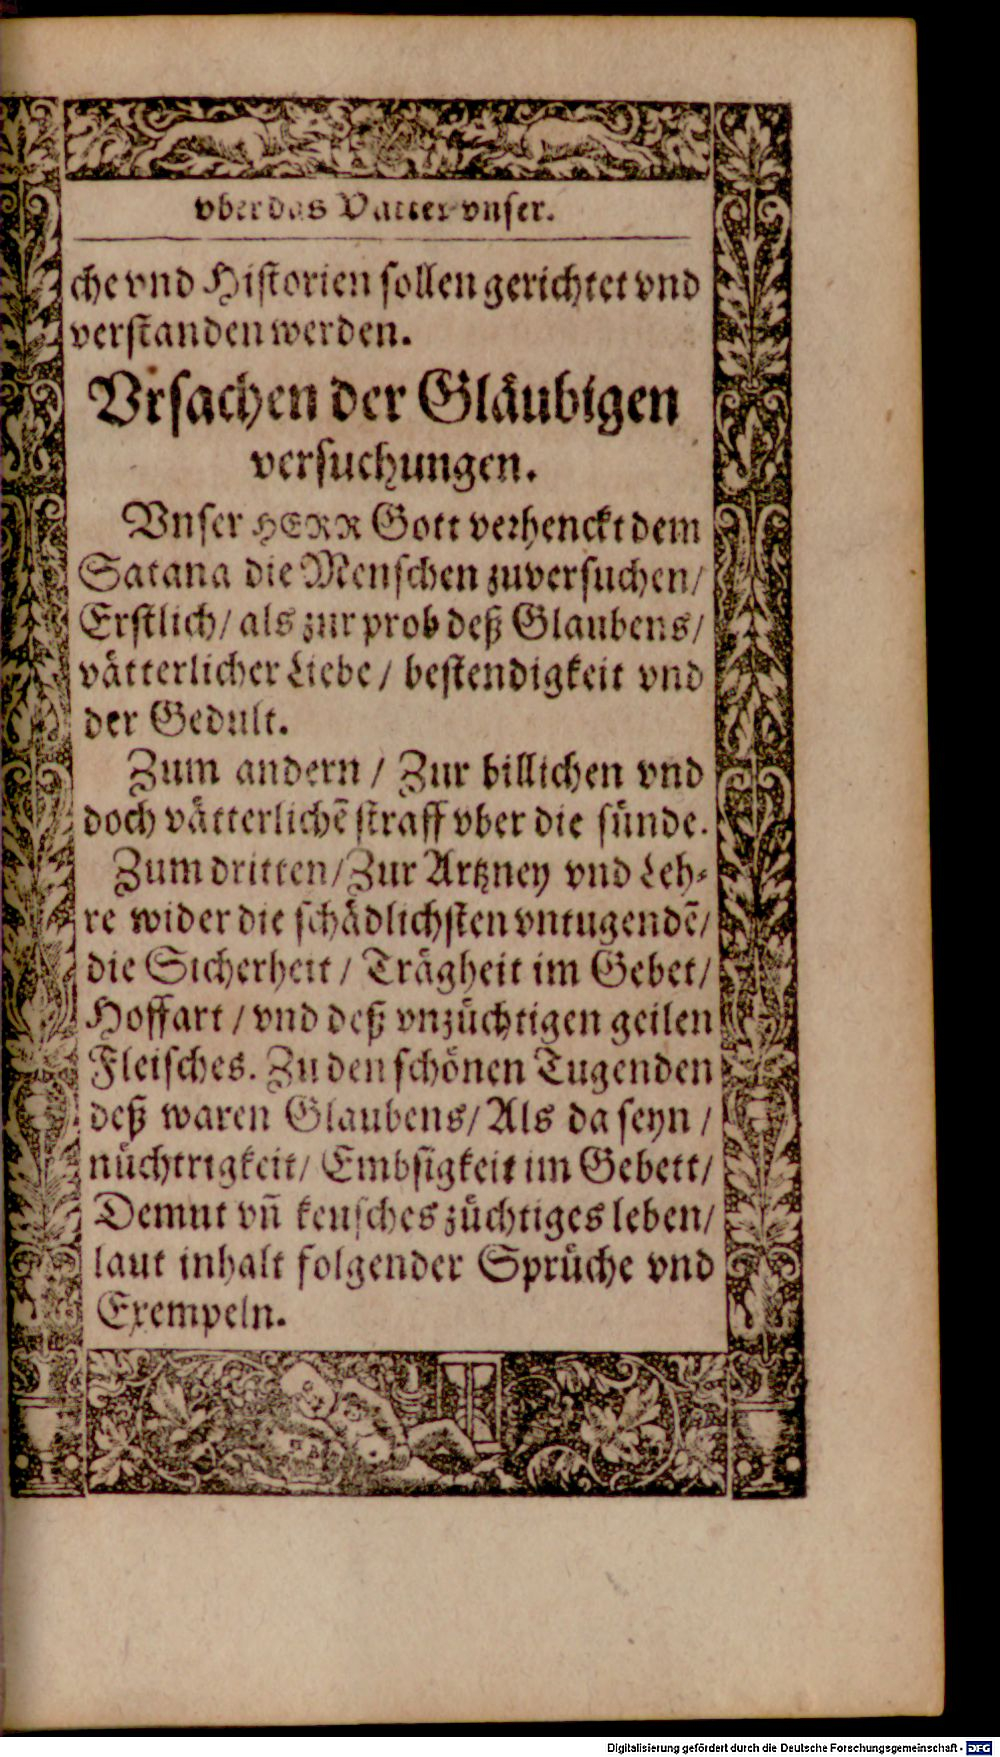 vber das Vatter vnser.
che vnd Historien sollen gerichtet vnd
verstanden werden.
Vrsachen der Gläubigen
versuchungen.
Vnser HERR Gott verhenckt dem
Satana die Menschen zuversuchen/
Erstlich/ als zur prob deß Glaubens/
vätterlicher Liebe/ bestendigkeit vnd
der Gedult.
Zum andern/ Zur billichen vnd
doch vätterlichē straff vber die sünde.
Zum dritten/ Zur Artzney vnd Leh-
re wider die schädlichsten vntugendē/
die Sicherheit/ Trägheit im Gebet/
Hoffart/ vnd deß vnzüchtigen geilen
Fleisches. Zu den schönen Tugenden
deß waren Glaubens/ Als da seyn/
nüchtrigkeit/ Embsigkeit im Gebett/
Demut vñ keusches züchtiges leben/
laut inhalt folgender Sprüche vnd
Exempeln.
Digitalisierung gefördert durch die Deutsche Forschungsgemeinschaft - DFG